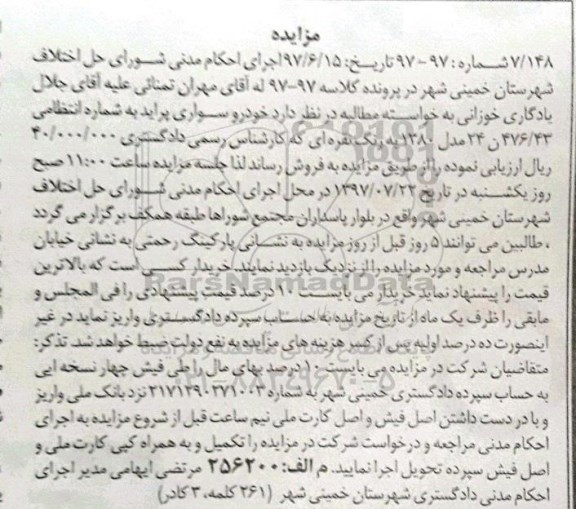 مزایده
۷/۱۴۸ شماره: ۹۷ - ۹۷ تاریخ: ۹۷/۶/۱۵ اجرای احکام مدنی شورای حل اختلاف
شهرستان خمینی شهر در پرونده کلاسه ۹۷-۹۷ له آقای مهران تمنائی علیه آقای جلال
یادگاری خوزانی به خواسته مطالبه در نظر دارد خودرو سواری پراید به شماره انتظامی
۴۷۶/۴۳ ن ۲۴ مدل ۱۳۸۰ به رنگ نقره ای که کارشناس رسمی دادگستری ۴۰/۰۰۰/۰۰۰
ریال ارزیابی نموده را از طریق مزایده به فروش رساند لذا جلسه مزایده ساعت ۱۱:۰۰ صبح
روز یکشنبه در تاریخ ۱۳۹۷/۰۷/۲۲ در محل اجرای احکام مدنی شورای حل اختلاف
شهرستان خمینی شهر واقع در بلوار پاسداران مجتمع شوراها طبقه همکف برگزار می گردد
، طالبین می توانند ۵ روز قبل از روز مزایده به نشانی پارکینگ رحمتی به نشانی خیابان
مدرس مراجعه و مورد مزایده را از نزدیک بازدید نمایند. خریدار کسی است که بالاترین
قیمت را پیشنهاد نماید خریدار می بایست ۱۰ درصد قیمت پیشنهادی را فی المجلس و
مابقی را ظرف یک ماه از تاریخ مزایده به حساب سپرده دادگستری واریز نماید در غیر
اینصورت ده درصد اولیه پس از کسر هزینه های مزایده به نفع دولت ضبط خواهد شد. تذکر:
متقاضیان شرکت در مزایده می بایست ۱۰ درصد بهای مال را طی فیش چهار نسخه ایی
به حساب سپرده دادگستری خمینی شهر به شماره ۲۱۷۱۲۹۰۲۷۱۰۰۳ نزد بانک ملی واریز
و با در دست داشتن اصل فیش و اصل کارت ملی نیم ساعت قبل از شروع مزایده به اجرای
احکام مدنی مراجعه و درخواست شرکت در مزایده را تکمیل و به همراه کپی کارت ملی و
اصل فیش سپرده تحویل اجرا نمایید. م الف: ۲۵۶۲۰۰ مرتضی ایهامی مدیر اجرای
احکام مدنی دادگستری شهرستان خمینی شهر (۲۶۱ کلمه، ۳ کادر)
ParsNamadData